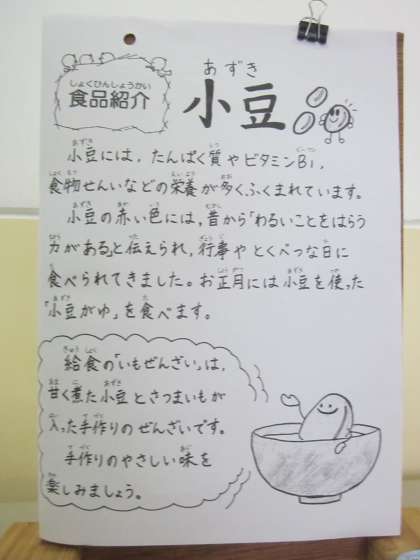 しょくひんしょうかい
食品紹介
あずき
小豆
小豆には、たんぱく質やビタミンB1、
食物せんいなどの栄養が多くふくまれています。
小豆の赤い色には、昔から「わるいことをはらう
力がある」と伝えられ、行事やとくべつな日に
食べられてきました。お正月には小豆を使った
「小豆がゆ」を食べます。
給食の「いもぜんざい」は、
甘く煮た小豆とさつまいもが
入った手作りのぜんざいです。
手作りのやさしい味を
楽しみましょう。